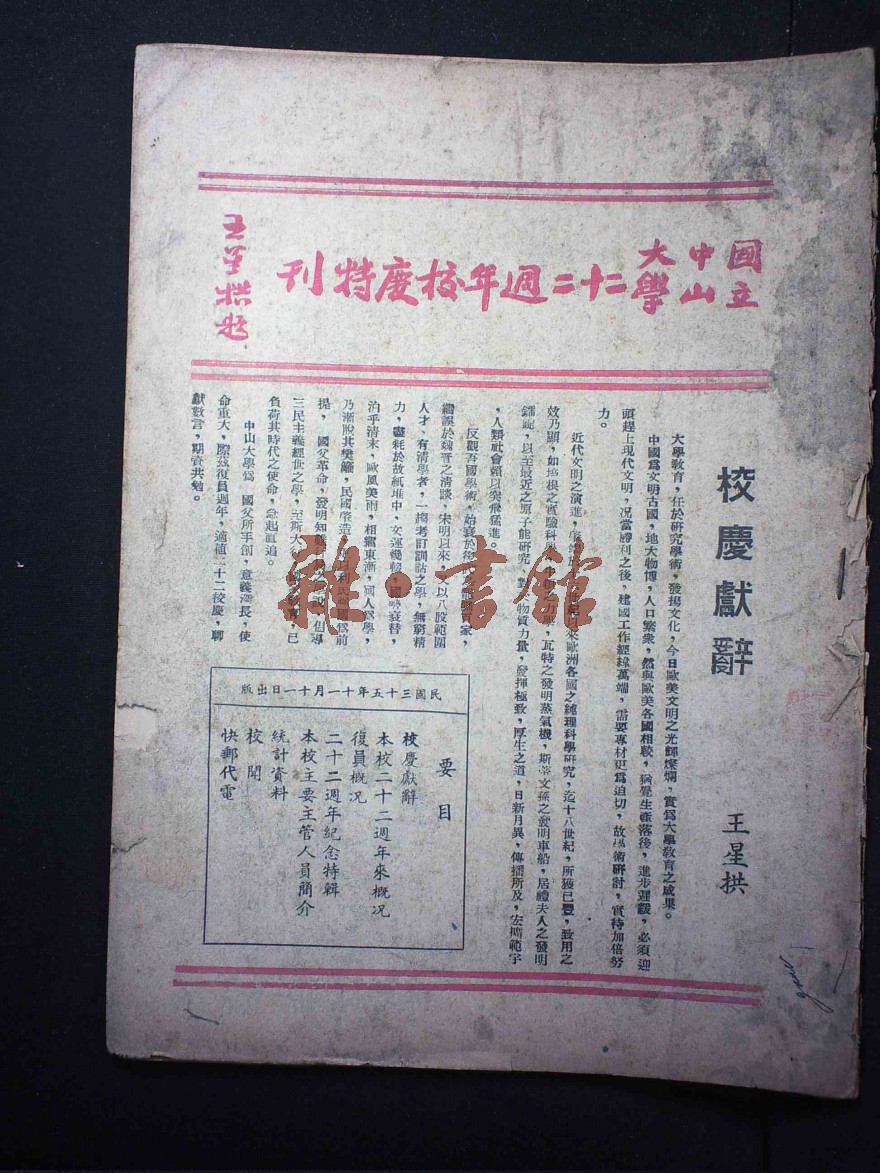 國立
中山
大學
二十二週年校慶特刊
王星拱題
校慶獻辭
王星拱
大學教育，在於研究學術，發揚文化，今日歐美文明之光輝燦爛，實爲大學教育之成果。
中國爲文明古國，地大物博，人口繁衆，然與歐美各國相較，猶覺生產落後，進步遲緩，必須迎
頭趕上現代文明，况當勝利之後，建國工作經緯萬端，需要專材更爲迫切，故學術研討，實待加倍努
力。
近代文明之演進，來歐洲各國之純理科學研究，迄十八世紀，所獲已豐，致用之
效乃顯，如培根之實驗科學，力學，瓦特之發明蒸氣機，斯蒂文孫之發明車船，居禮夫人之發明
鐳錠，以至最近之原子能研究，物質力量，發揮極致，厚生之道，日新月異，傳播所及，宏擴範宇
，人類社會賴以突飛猛進。
反觀吾國學術，始衰於家，
繼誤於魏晋之清談，宋明以來，又以八股範圍
人才、有清學者，一搦考訂訓詁之學，無窮精
力，盡耗於故紙堆中，文運幾頓，國勢衰替，
泊乎清末，歐風美雨，相繼東漸，國人爲學，
乃漸脫其樊籬，民國肇造，利民福國爲前
提，國父革命，發明知難倡導
三民主義經世之學，至斯大，已
負荷其時代之使命，急起直追。
中山大學爲　國父所手創，意義深長，使
命重大，際茲復員週年，適値二十二校慶，聊
獻數言，期資共勉。
民國三十五年十一月十一日出版
要目
校慶獻辭
本校二十二週年來概況
復員概况
二十二週年紀念特輯
本校主要主管人員簡介
統計資料
校聞
快郵代電
雜·書館